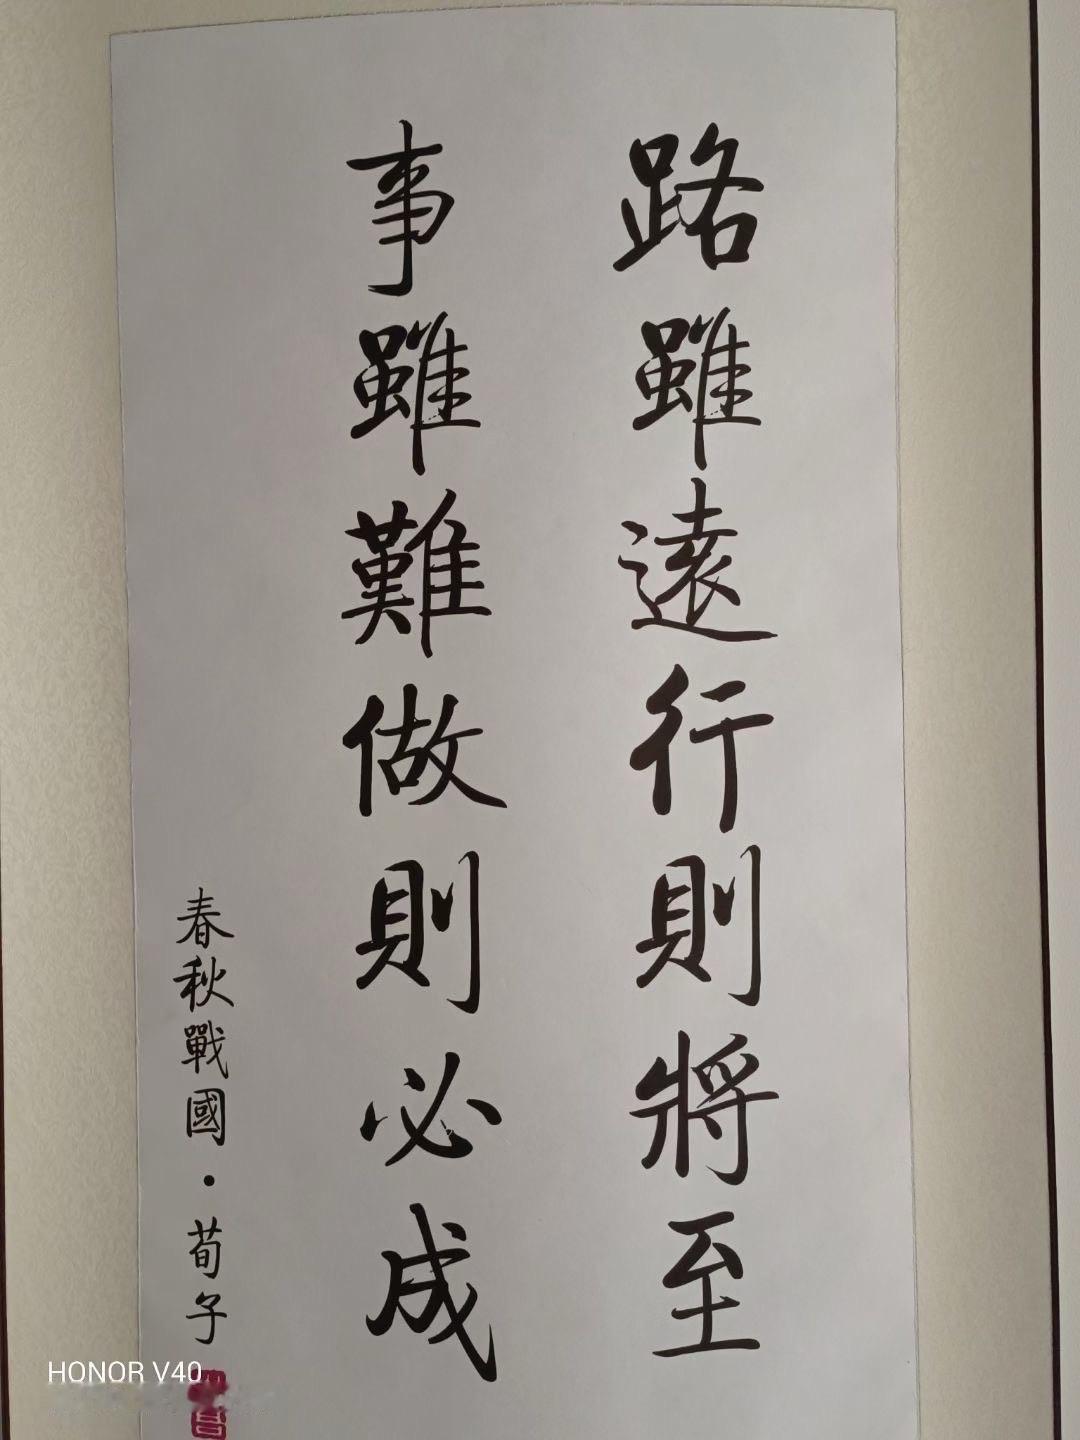 路雖遠行則將至
事雖難做則必成
春秋戰國·荀子
HONOR V40